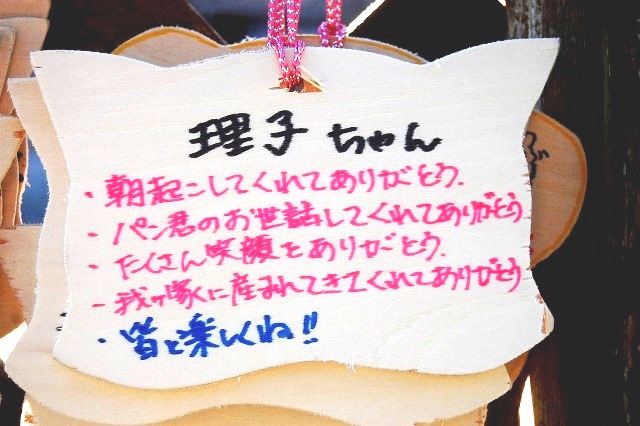 理子ちゃん
・朝起こしてくれてありがとう.
・パン君のお世話してくれてありがとう
・たくさん笑顔をありがとう.
・我が家に産まれてきてくれてありがとう
・皆と楽しくね!!